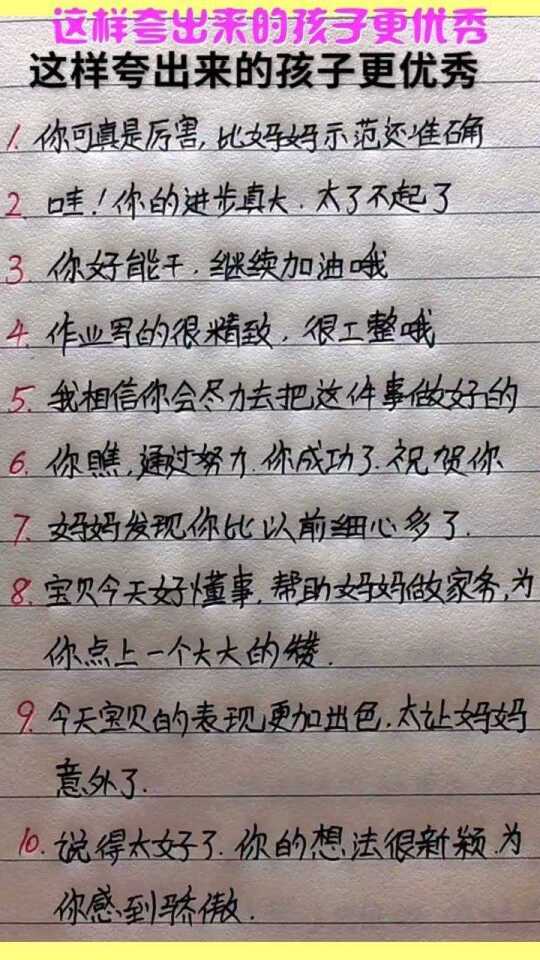 这样夸出来的孩子更优秀
这样夸出来的孩子更优秀
1. 你可真是厉害,比妈妈示范还准确
2. 哇!你的进步真大.太了不起了
3. 你好能干.继续加油哦
4. 作业写的很精致,很工整哦
5. 我相信你会尽力去把这件事做好的
6. 你瞧,通过努力.你成功了.祝贺你
7. 妈妈发现你比以前细心多了.
8. 宝贝今天好懂事,帮助妈妈做家务,为
你点上一个大大的赞.
9. 今天宝贝的表现更加出色.太让妈妈
意外了.
10. 说得太好了.你的想法很新颖.为
你感到骄傲.